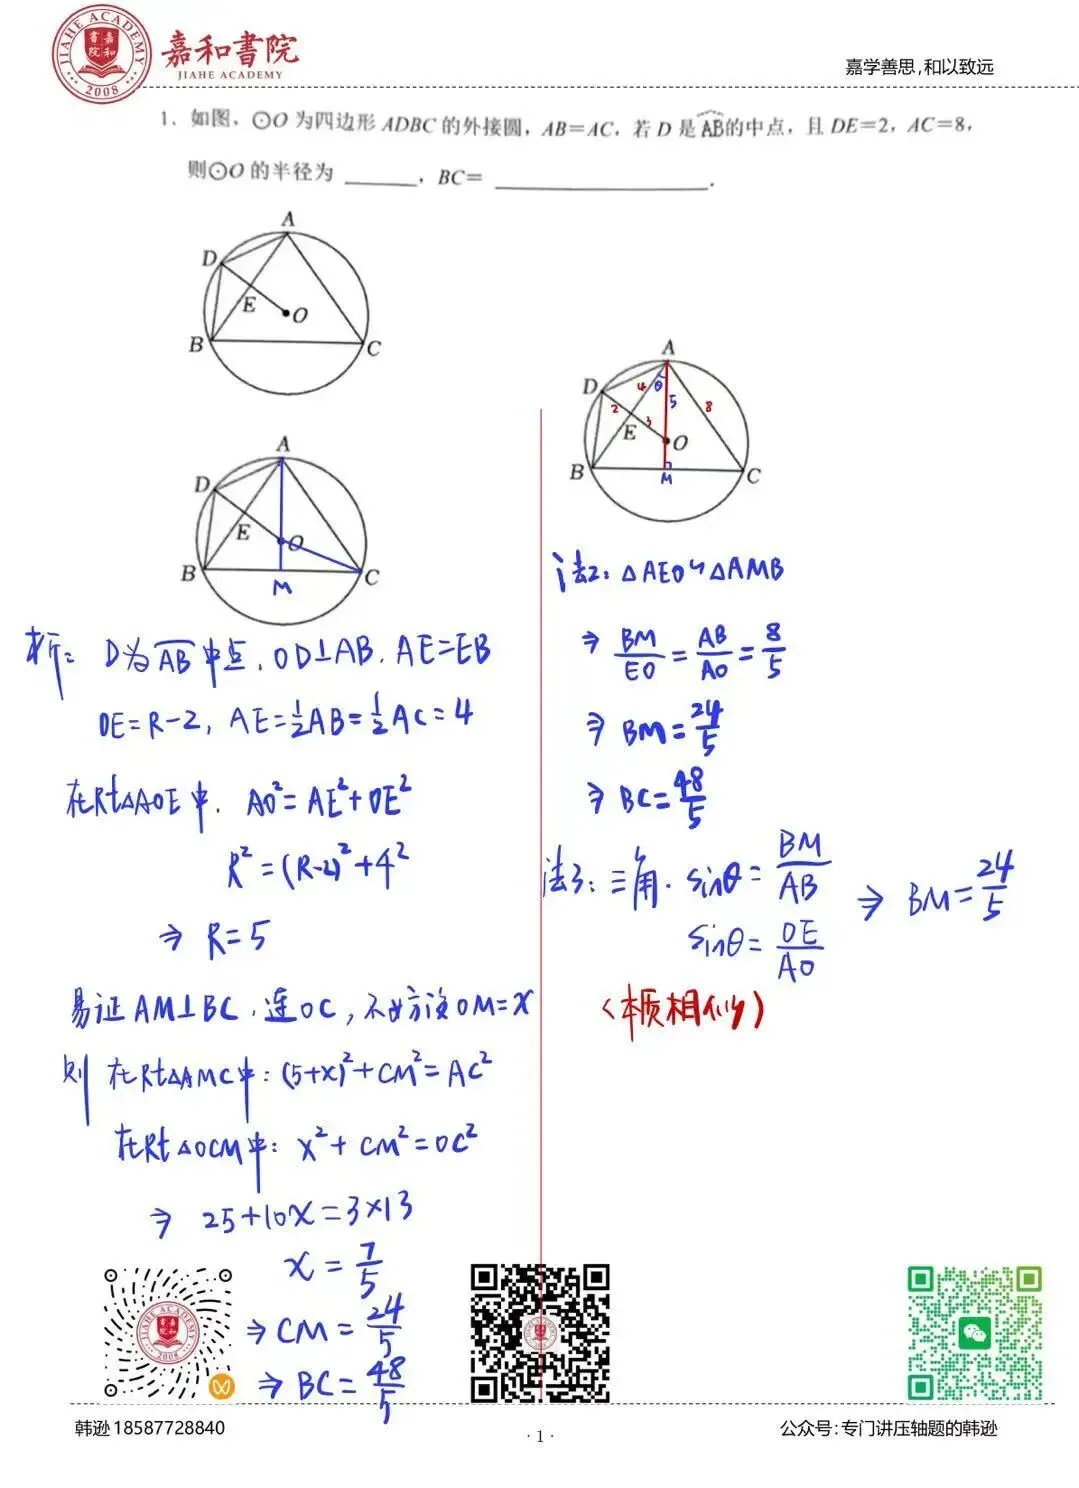 JIAHE ACADEMY
嘉和
書院
2008
嘉和書院
JIAHE ACADEMY
嘉学善思,和以致远
1. 如图,⊙O 为四边形 ADBC 的外接圆,AB=AC,若 D 是 AB的中点,且 DE=2,AC=8,
则⊙O 的半径为 ______,BC= __________________.
A
D
E
O
B
C
A
D
E
O
B
M
C
A
D
4
θ
5
8
2
3
E
O
B
M
C
析: D为AB中点, OD⊥AB, AE=EB
OE=R-2, AE=½AB=½AC=4
在Rt△AOE中, AO²=AE²+OE²
R²=(R-2)²+4²
⇒ R=5
易证 AM⊥BC, 连OC, 不妨设OM=x
则 在Rt△AMC中: (5+x)²+CM²=AC²
在Rt△OCM中: x²+CM²=OC²
⇒ 25+10x=3×13
x=7/5
⇒ CM=24/5
⇒ BC=48/5
法2: △AEO∽△AMB
⇒ BM/EO=AB/AO=8/5
⇒ BM=24/5
⇒ BC=48/5
法3: 三角. sinθ=BM/AB ⇒ BM=24/5
sinθ=OE/AO
(本质相似)
JIAHE ACADEMY
嘉和
書院
2008
韩逊 18587728840
· 1 ·
公众号:专门讲压轴题的韩逊